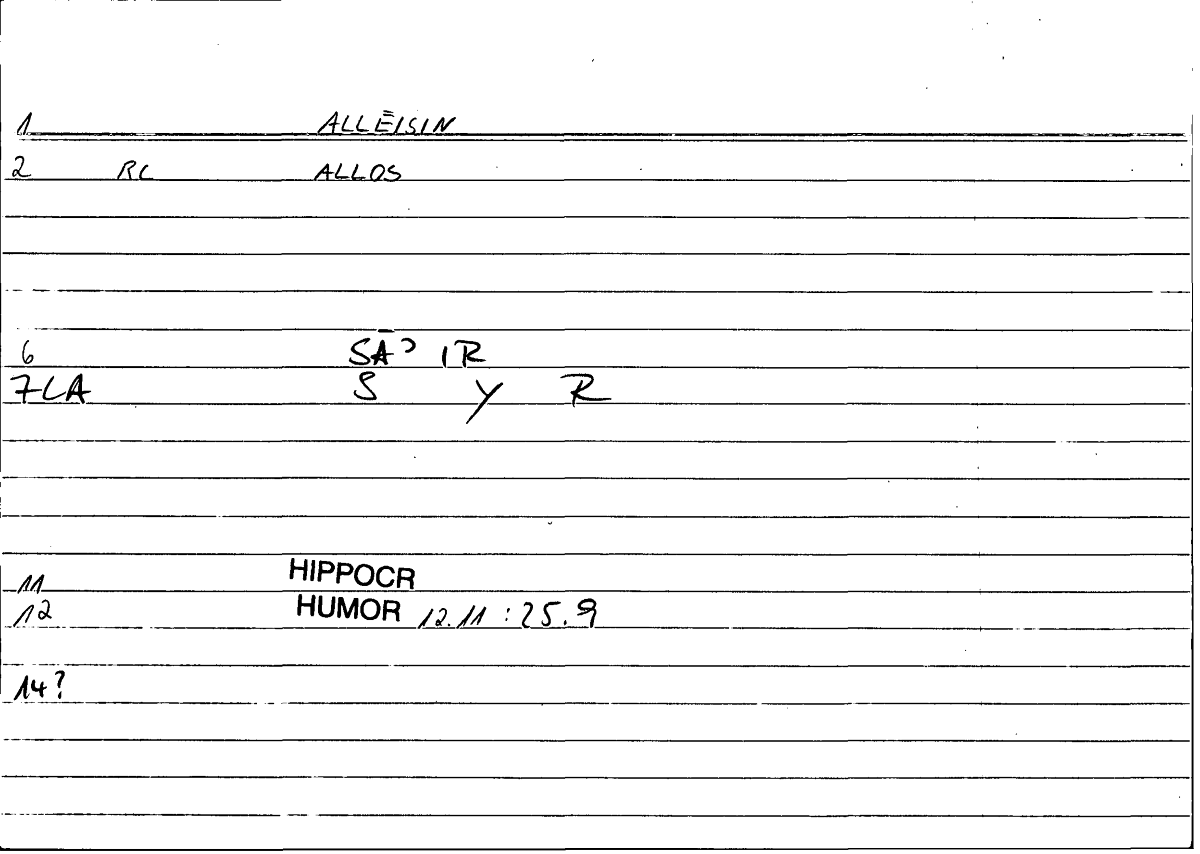 1 ALLĒISIN
2 RC ALLOS
6 SĀʾIR
7LA S Y R
11 HIPPOCR
12 HUMOR 12.11 : 25.9
14?